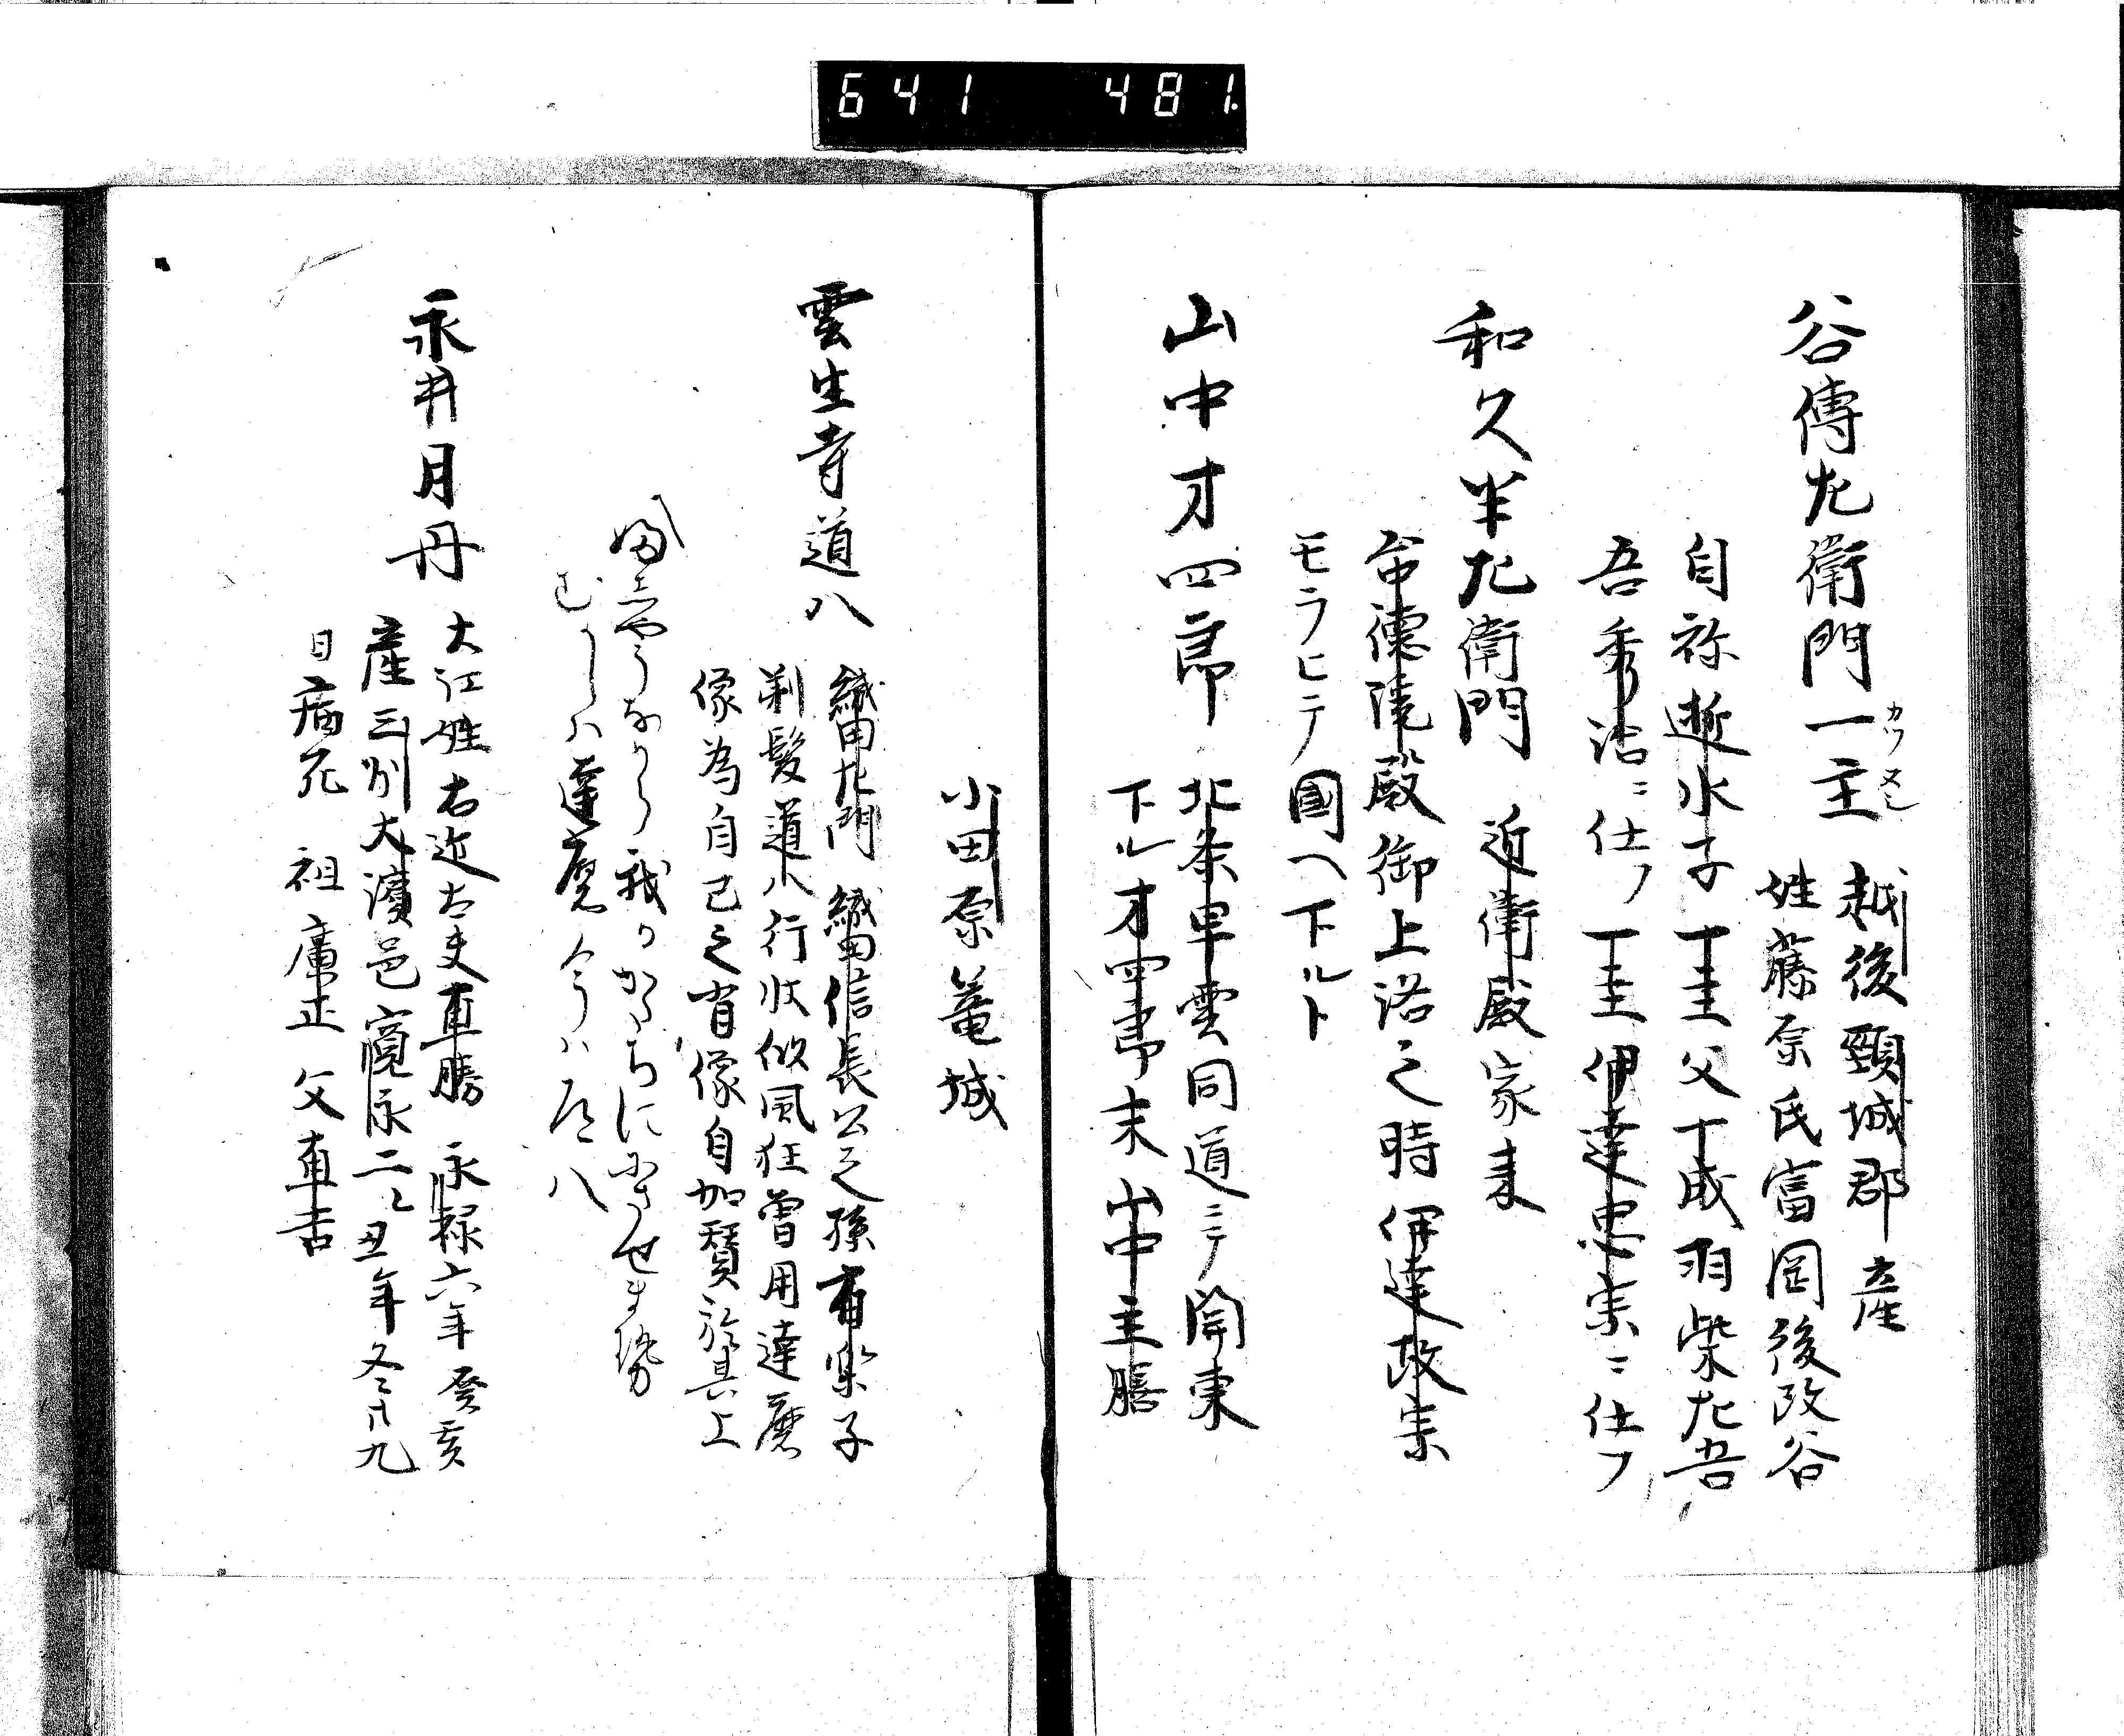 641 481.
谷傳左衛門一主 越後頸城郡産
姓藤原氏富岡後改谷
自称逝水子一圭父一成羽柴左吾
吾秀治ニ仕ノ一圭伊達忠宗ニ仕フ
和久半左衛門 近衛殿家来
台徳院殿御上洛之時伊達政宗
モラヒテ國ヘ下ルト
山中才四郎 北条早雲同道ニテ関東
下ル才四郎末山中主膳
小田原篭城
雲生寺道八 織田左門織田信長公之孫有楽子
剃髪道八行状似風狂曽用達磨
像為自己之省像自加賛於其上
我かかたちに
むかしハ達磨今ハ道八
永井月丹 大江姓右近太夫直勝 永禄六年癸亥
産三州大濱邑寛永二乙丑年冬 九
日病死 祖廣正 父直吉